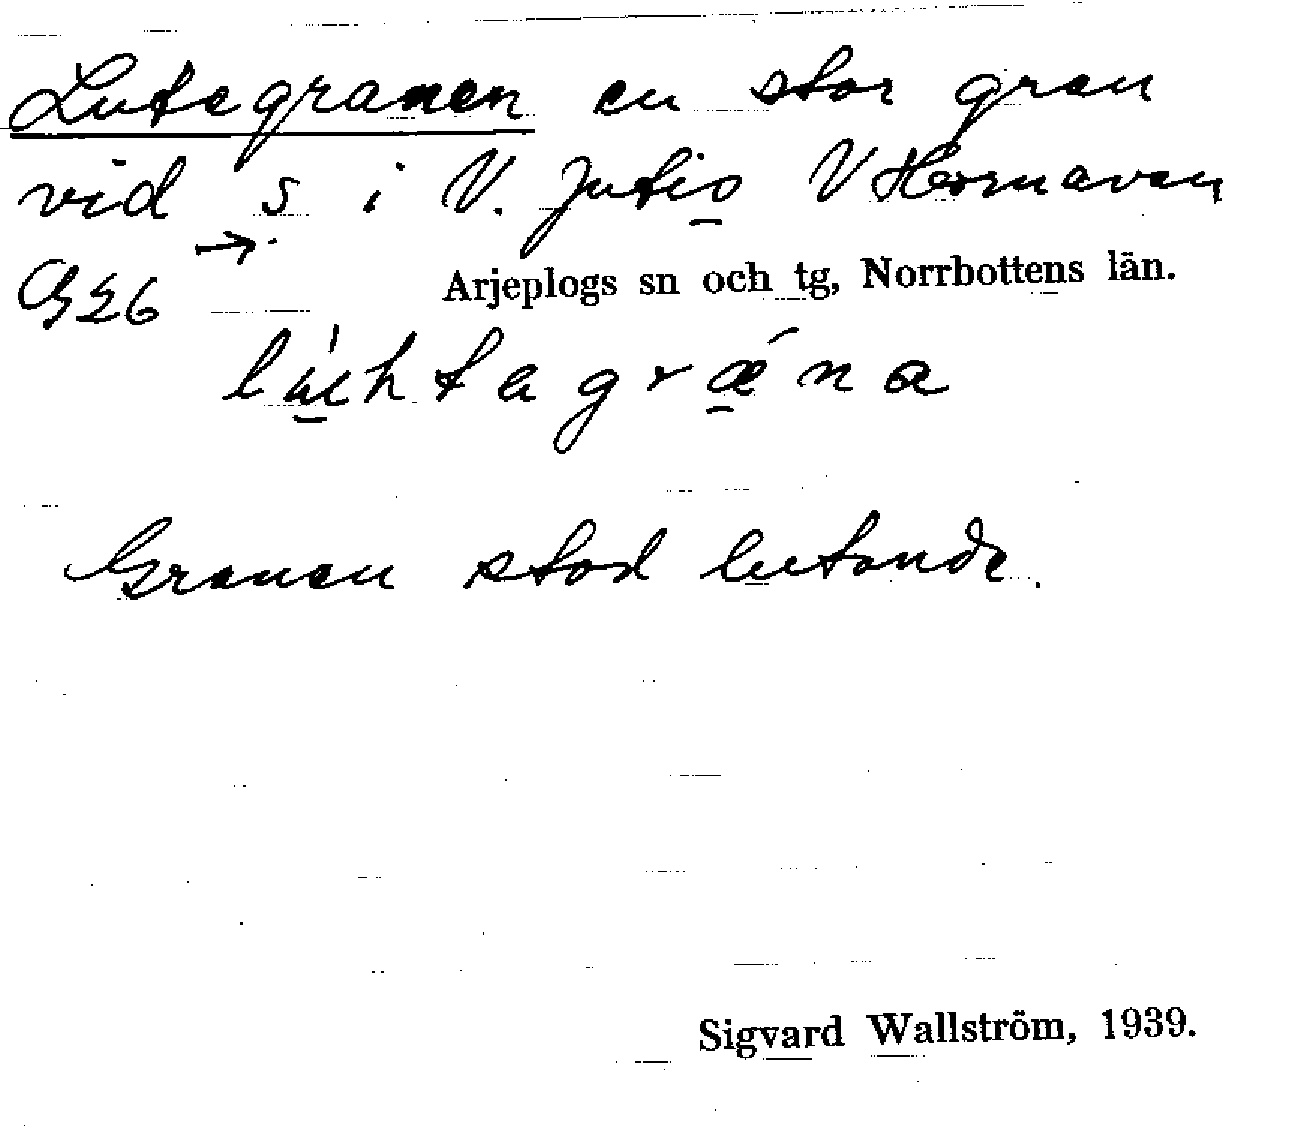 Lutagranen en stor gran
vid s i V. Jutis V Hornavan
→
G26 Arjeplogs sn och tg, Norrbottens län.
Granen stod lutande.
Sigvard Wallström, 1939.